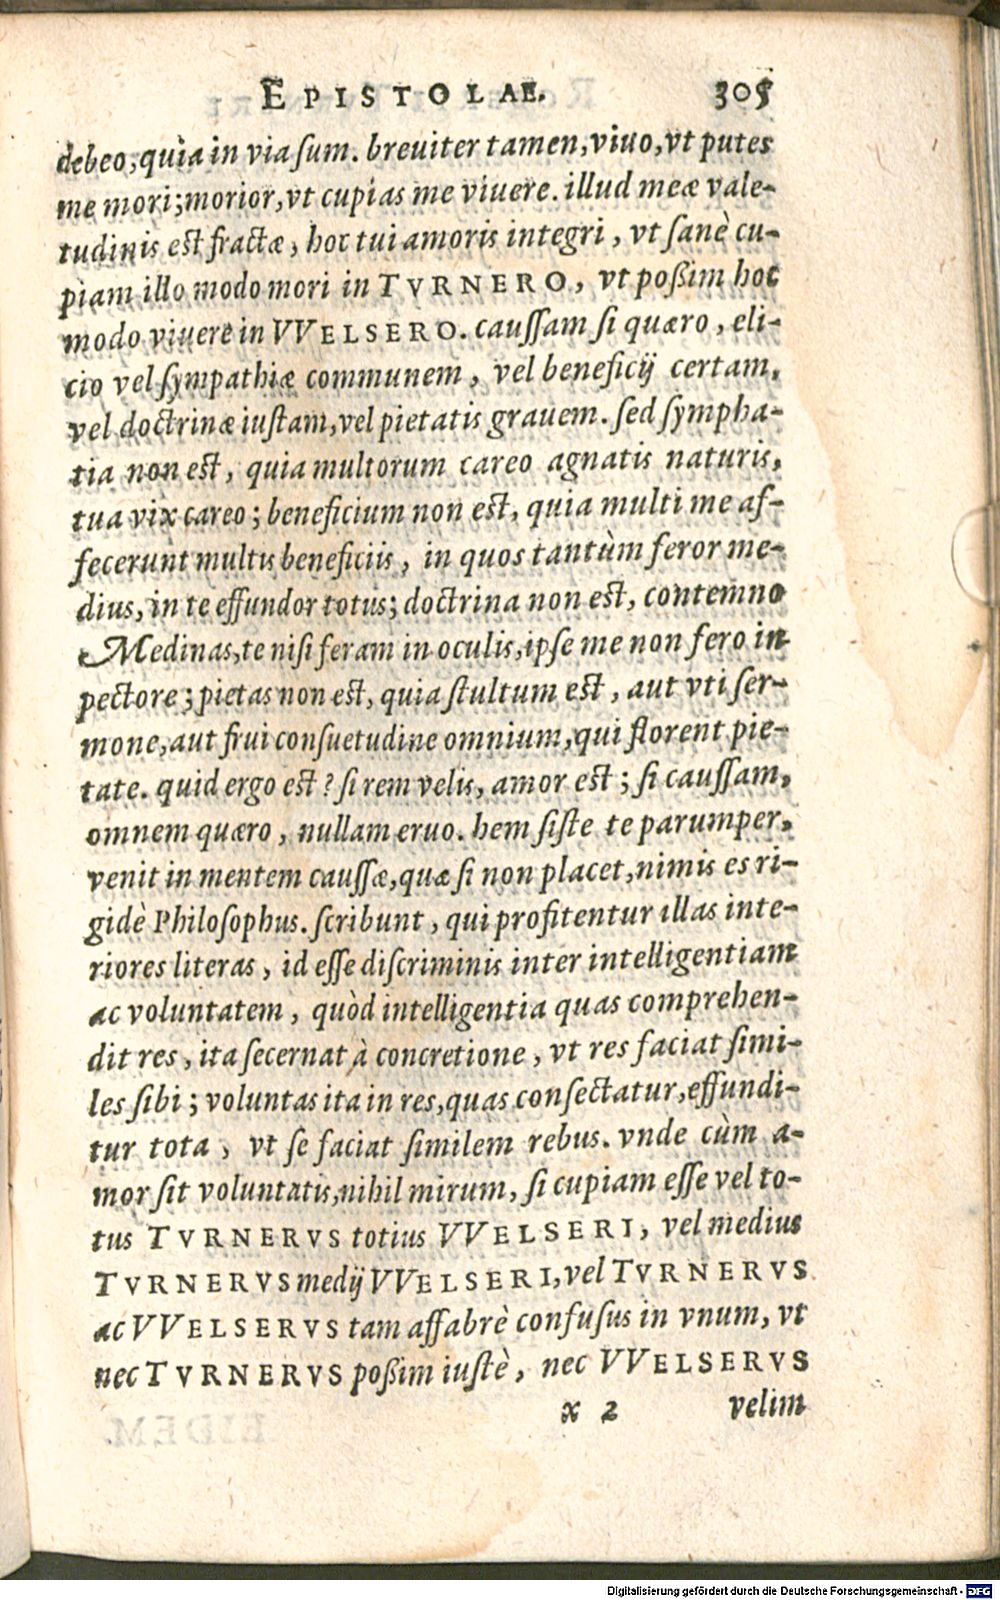 EPISTOLAE. 305
debeo, quia in via sum. breuiter tamen, viuo, vt putes
me mori; morior, vt cupias me viuere. illud meæ vale-
tudinis est fractæ, hoc tui amoris integri, vt sanè cu-
piam illo modo mori in TVRNERO, vt poßim hoc
modo viuere in VVELSERO. caussam si quæro, eli-
cio vel sympathiæ communem, vel beneficij certam,
vel doctrinæ iustam, vel pietatis grauem. sed sympha-
tia non est, quia multorum careo agnatis naturis,
tua vix careo; beneficium non est, quia multi me af-
fecerunt multis beneficiis, in quos tantùm feror me-
dius, in te effundor totus; doctrina non est, contemno
Medinas, te nisi feram in oculis, ipse me non fero in
pectore; pietas non est, quia stultum est, aut vti ser-
mone, aut frui consuetudine omnium, qui florent pie-
tate. quid ergo est? si rem velis, amor est; si caussam,
omnem quæro, nullam eruo. hem siste te parumper,
venit in mentem caussæ, quæ si non placet, nimis es ri-
gidè Philosophus. scribunt, qui profitentur illas inte-
riores literas, id esse discriminis inter intelligentiam
ac voluntatem, quòd intelligentia quas comprehen-
dit res, ita secernat à concretione, vt res faciat simi-
les sibi; voluntas ita in res, quas consectatur, effundi-
tur tota, vt se faciat similem rebus. vnde cùm a-
mor sit voluntatis, nihil mirum, si cupiam esse vel to-
tus TVRNERVS totius VVELSERI, vel medius
TVRNERVS medij VVELSERI, vel TVRNERVS
ac VVELSERVS tam affabrè confusus in vnum, vt
nec TVRNERVS poßim iustè, nec VVELSERVS
x 2 velim
Digitalisierung gefördert durch die Deutsche Forschungsgemeinschaft - DFG